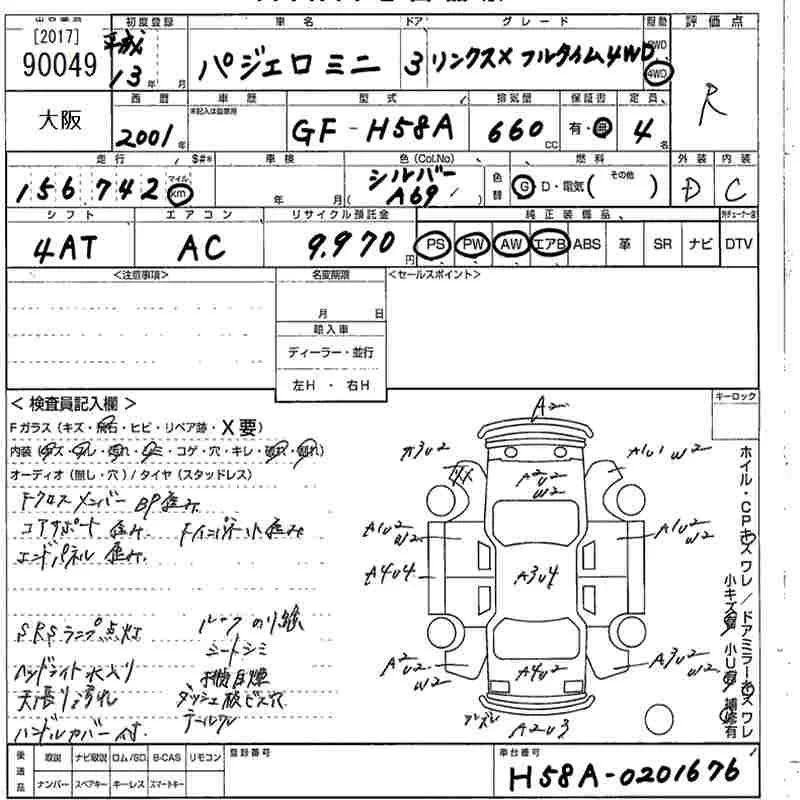 [2017]
90049
初度登録
平成
13年 月
車名
パジェロミニ
ドア
3
グレード
リンクスX フルタイム4WD
駆動
2WD
4WD
評価点
R
大阪
西暦
2001年
車歴
未記入は自家用
型式
GF-H58A
排気量
660 CC
保証書
有・無
定員
4名
走行
156,742
マイル
km
S#*
車検
年 月
色(Col.No)
シルバー
( A69 )
色替
燃料
G D・電気( その他 )
外装
D
内装
C
シフト
4AT
エアコン
AC
リサイクル預託金
9,970円
純正装備品
PS PW AW エアB ABS 革 SR ナビ DTV
<注意事項>
名変期限
月 日
輸入車
ディーラー・並行
左H ・ 右H
<セールスポイント>
< 検査員記入欄 >
Fガラス(キズ・飛石・ヒビ・リペア跡・X要)
内装(キズ・スレ・汚れ・シミ・コゲ・穴・キレ・破れ・割れ)
オーディオ(無し・穴)/タイヤ(スタッドレス)
Fクロスメンバー BP歪み
コアサポート 歪み Fインパネト歪み
エンドパネル 歪み
SRSランプ点灯
ルーフ のり跡
シートシミ
ヘッドライト水入り
天張り汚れ
ダッシュ板ビス穴
ハンドルカバー付
キーロック
A2
A3U2
A1U1 W2
A2U2
W2
A1U2
W2
A1U2
W2
A4U4
A3U4
A2U2
W2
A4U2
A3U2
W2
A2U3
ホイル・CPキズ ワレ / ドアミラーキズ ワレ
小キズ有 小U有 補修有
後送品
取説 ナビ取説 ロム/SD B-CAS リモコン
ナンバー スペアキー キーレス スマートキー
登録番号
車台番号
H58A-0201676